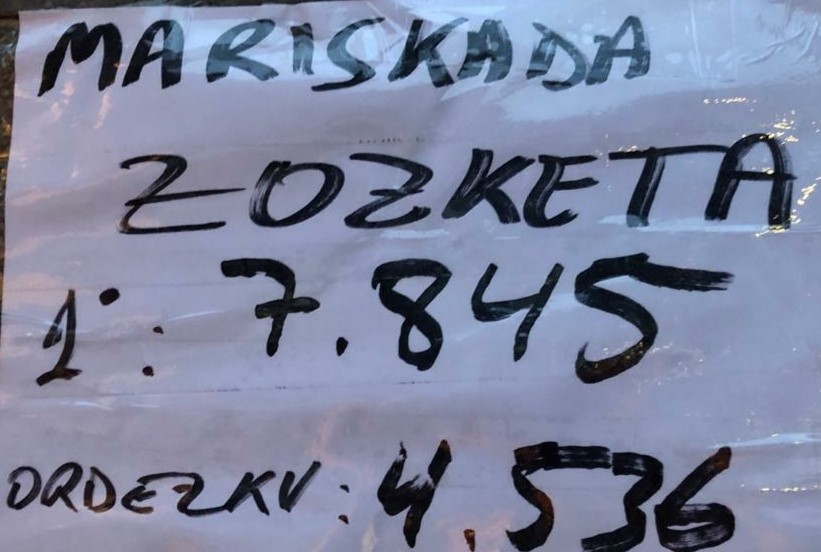 MARISKADA
ZOZKETA
1º: 7.845
ORDEZKU: 4.536